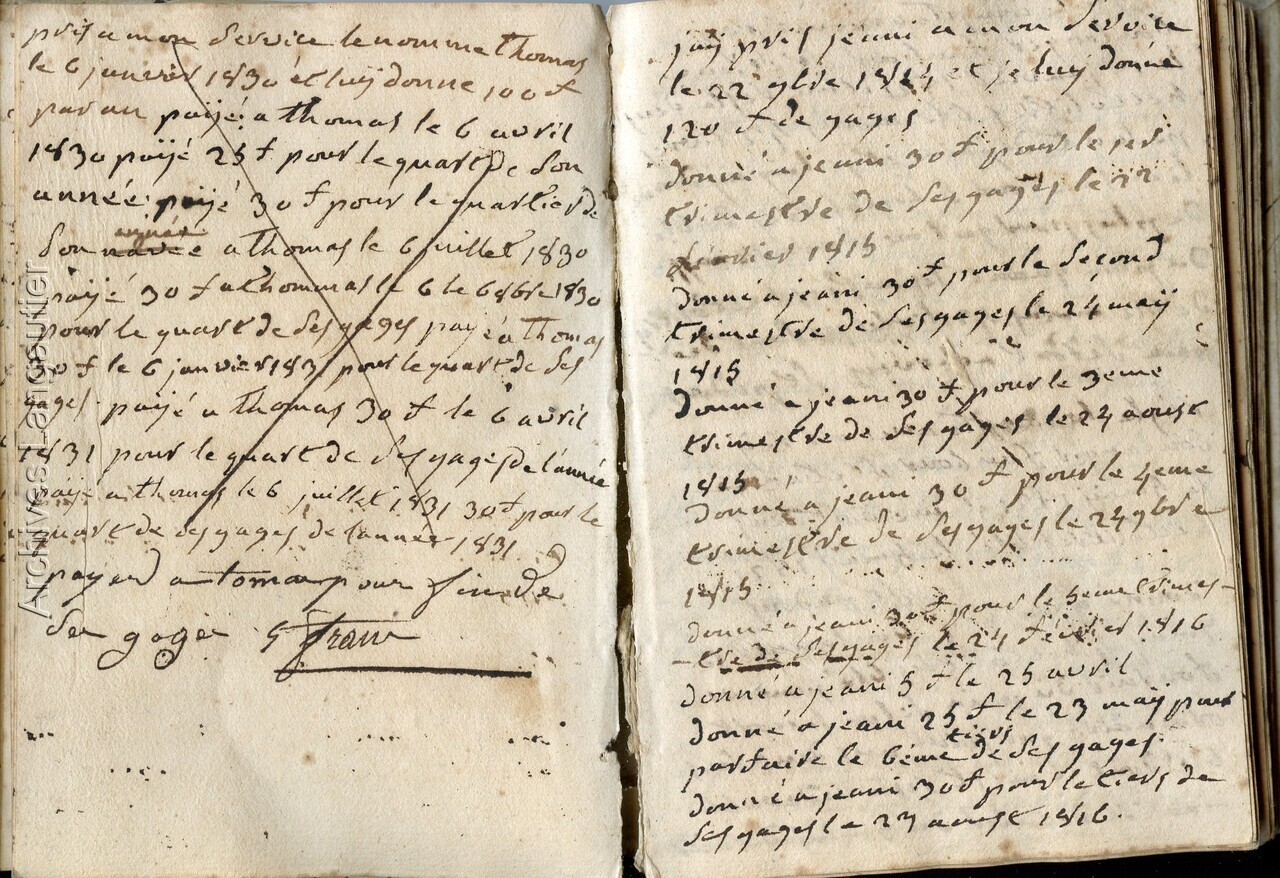 pris a mon service le nomme thomas
le 6 janvier 1830 et luÿ donne 100 f
par an paÿé a thomas le 6 avril
1830 paÿé 25 f pour le quart de son
année paÿé 30 f pour le quartier de
son année a thomas le 6 juillet 1830
paÿé 30 f a thommas le 6 1830
pour le quart de ses gages paÿé a thomas
30 f le 6 janvier 1831 pour le quart de ses
gages paÿé a thomas 30 f le 6 avril
1831 pour le quart de ses gages de l'année
paÿé a thomas le 6 juillet 1831 30 f pour le
quart de ses gages de l'année 1831
payed a toma pour fin de
se gage 5 fran
jaÿ pris jeani a mon service
le 22 9bre 1814 et je luÿ donne
120 f de gages
donné a jeani 30 f pour le 1er
trimestre de ses gages le 22
février 1815
donné a jeani 30 f pour le second
trimestre de ses gages le 24 maÿ
1815
donné a jeani 30 f pour le 3eme
trimestre de ses gages le 24 aoust
1815
donné a jeani 30 f pour le 4eme
trimestre de ses gages le 24 9bre
1815
donné a jeani 30 f pour le 5eme trimes-
-tre de ses gages le 24 février 1816
donné a jeani 5 f le 25 avril
donné a jeani 25 f le 23 maÿ pour
tiers
parfaire le 6eme de ses gages
donné a jeani 30 f pour le tiers de
ses gages le 23 aoust 1816.
Archives Langeautier